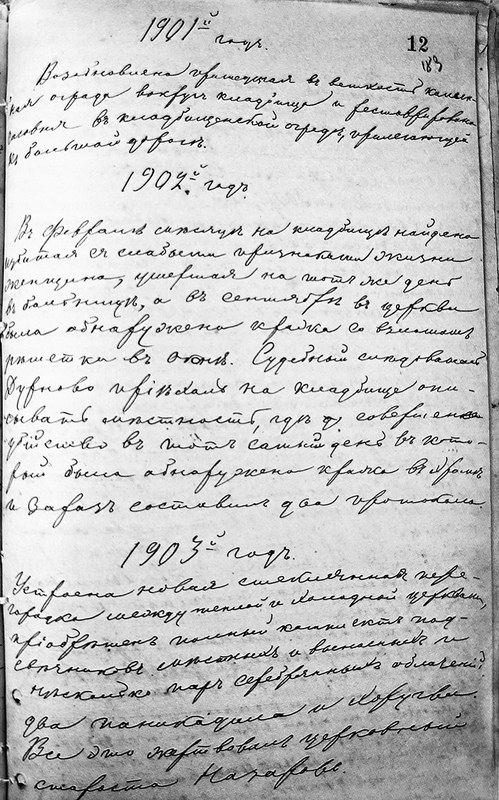 1901й годъ.
12
183
Возобновлена пришедшая въ ветхость камен-
ная ограда вокругъ кладбища и реставрирована
часовня въ кладбищенской оградѣ, прилегающей
къ большой дорогѣ.
1902й годъ.
Въ Февралѣ мѣсяцѣ на кладбищѣ найдена
избитая съ слабыми признаками жизни
женщина, умершая на тотъ же день
въ больницѣ, а въ сентябрѣ въ церкви
была обнаружена кража со взломомъ
рѣшетки въ окнѣ. Судебный слѣдователь
Дурново пріѣхалъ на кладбище опи-
сывать мѣстность, гдѣ совершено
убійство въ тотъ самый день въ кото-
рый была обнаружена кража въ храмѣ
и заразъ составилъ два протокола.
1903й годъ.
Устроена новая стеклянная пере-
городка между теплой и холодной церквами,
пріобрѣтенъ полный комплектъ под-
свѣчниковъ мѣстныхъ и выносныхъ и
нѣсколько паръ серебряныхъ облаченій,
два паникадила и хоругви.
Все это жертвовалъ церковный
староста Назаровъ.